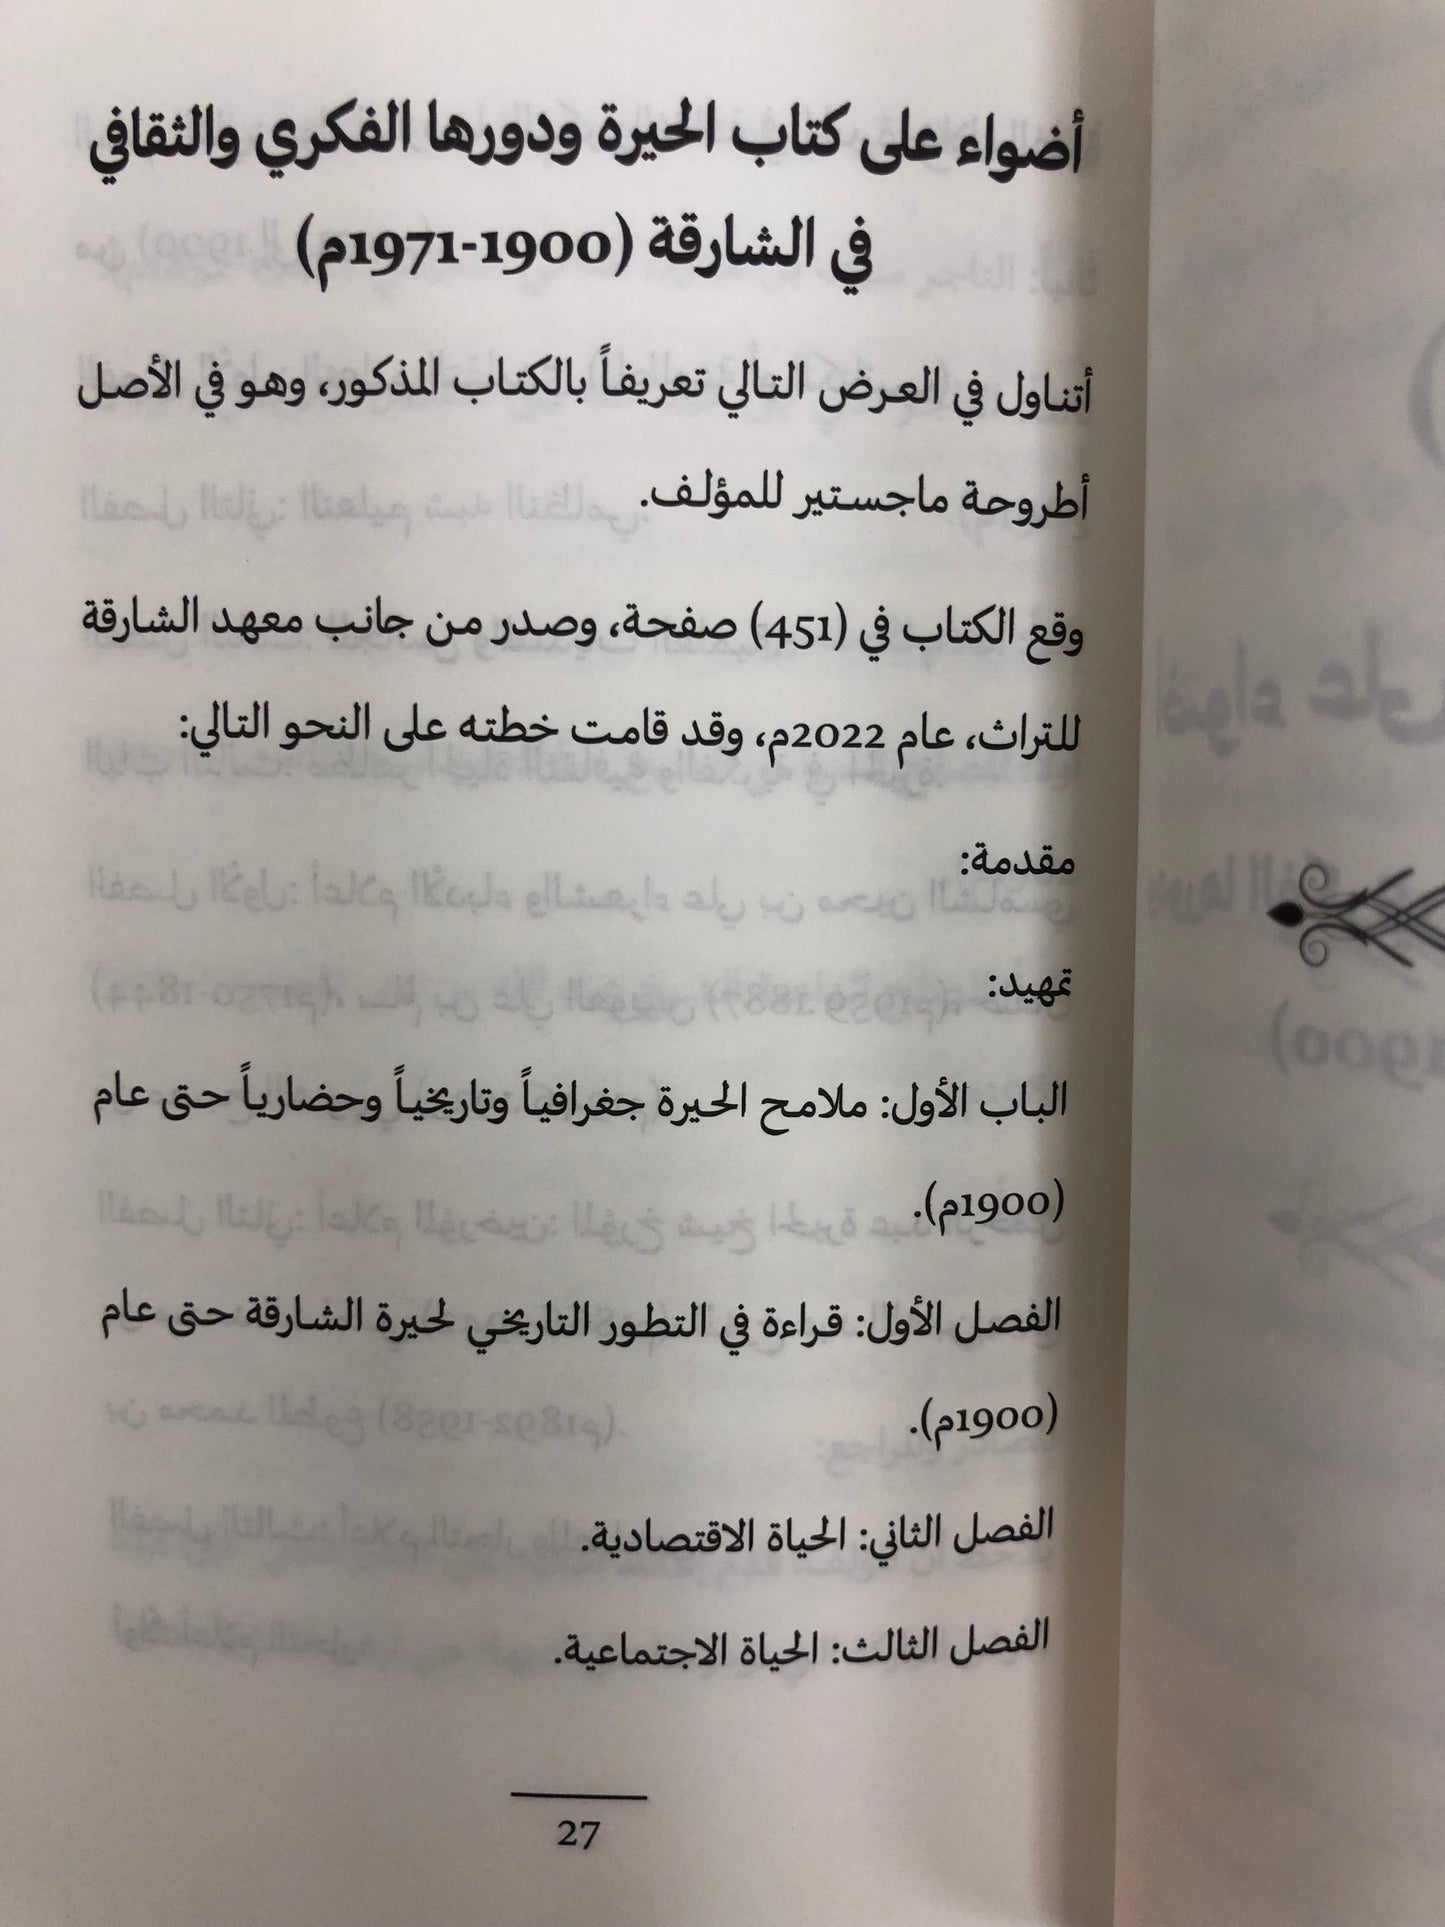 أضواء على كتاب الحيرة ودورها الفكري والثقافي
في الشارقة (1900-1971م)
أتناول في العرض التالي تعريفاً بالكتاب المذكور، وهو في الأصل
أطروحة ماجستير للمؤلف.
وقع الكتاب في (451) صفحة، وصدر من جانب معهد الشارقة
للتراث، عام 2022م، وقد قامت خطته على النحو التالي:
مقدمة:
تمهيد:
الباب الأول: ملامح الحيرة جغرافياً وتاريخياً وحضارياً حتى عام
(1900م).
الفصل الأول: قراءة في التطور التاريخي لحيرة الشارقة حتى عام
(1900م).
الفصل الثاني: الحياة الاقتصادية.
الفصل الثالث: الحياة الاجتماعية.
27